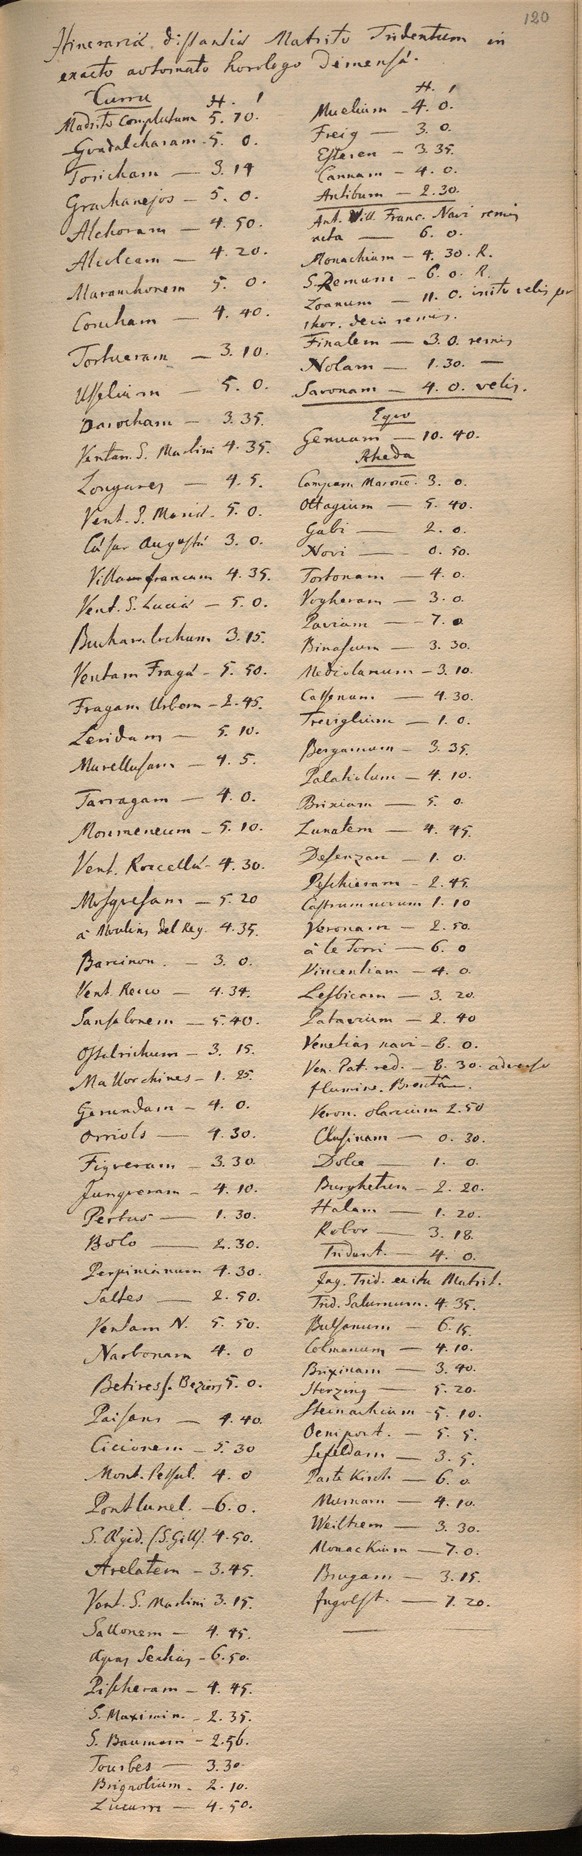 120
Itineraria distantia Matrito Tridentum in
exacto automato horologo dimensa.
Curru H. '
Madrito Complutum 5. 10.
Guadalcharam - 5. 0.
Toricham — 3. 14
Grachanejos - 5. 0.
Alchoram — 4. 50.
Alcoleam — 4. 20.
Maranchonem 5. 0.
Concham — 4. 40.
Tortueram — 3. 10.
Usselium — 5. 0.
Darocham — 3. 35.
Ventam S. Martini 4. 35.
Longares — 4. 5.
Vent. S. Mariae. 5. 0.
Caesar Augusta 3. 0.
Villamfrancam 4. 35.
Vent. S. Lucia — 5. 0.
Bucharalochum 3. 15.
Ventam Fraga - 5. 50.
Fragam Urbem - 2. 45.
Leridam — 5. 10.
Murellusam — 4. 5.
Tarragam — 4. 0.
Monmeneum - 5. 10.
Vent. Roccella - 4. 30.
Mosquefam — 5. 20
a Moulins del Rey. 4. 35.
Barcinon. — 3. 0.
Vent. Rocco — 4. 34.
Sanselonem — 5. 40.
Ostelrichum — 3. 15.
Mallorchines - 1. 25.
Gerundam — 4. 0.
Orriols — 4. 30.
Figueram — 3. 30.
Junqueram — 4. 10.
Pertus — 1. 30.
Bolo — 2. 30.
Perpinianum 4. 30.
Saltes — 2. 50.
Ventam N. 5. 50.
Narbonam 4. 0
Betires s. Beziers 5. 0.
Paisans — 4. 40.
Cicionem — 5. 30
Mont. Pessul. 4. 0
Pont lunel. — 6. 0.
S. Aegid. (S. Gill). 4. 50.
Arelatem — 3. 45.
Vent. S. Martini 3. 15.
Sallonem — 4. 45.
Aquas Sextias - 6. 50.
Pischeram — 4. 45.
S. Maximin. - 2. 35.
S. Baumam - 2. 56.
Tourbes — 3. 30
Brignolium. - 2. 10.
Lucum — 4. 50.
H. '
Muelium - 4. 0.
Freig — 3. 0.
Esteren — 3. 35.
Cannam — 4. 0.
Antibum — 2. 30.
Ant. Vill. Franc. Navi remis
acta — 6. 0.
Monachium - 4. 30. R.
S. Remum — 6. 0. R.
Loanum — 11. 0. initio velis per
4 hor. dein remis.
Finalem — 3. 0. remis
Nolam — 1. 30. —
Savonam — 4. 0. velis.
Equo
Genuam — 10. 40.
Rheda
Campum Maronc. 3. 0.
Ottagium — 5. 40.
Gabi — 2. 0.
Novi — 0. 50.
Tortonam — 4. 0.
Vogheram — 3. 0.
Paviam — 7. 0.
Binascum — 3. 30.
Mediolanum — 3. 10.
Cassanum — 4. 30.
Treviglium — 1. 0.
Bergamum - 3. 35.
Palatiolum — 4. 10.
Brixiam — 5. 0.
Lunatem — 4. 45.
Desenzan — 1. 0.
Peschieram - 2. 45.
Castrum novum 1. 10
Veronam — 2. 50.
a le Torri — 6. 0
Vincentiam — 4. 0.
Lesbicam — 3. 20.
Patavium — 2. 40
Venetias navi - 8. 0.
Ven. Pat. red. — 8. 30. adverso
flumine. Brenta.
Veron. Volarnium 2. 50
Clusinam — 0. 30.
Dolce — 1. 0.
Burghetum — 2. 20.
Halam — 1. 20.
Rover — 3. 18.
Trident. — 4. 0.
Trid. Salurnum. 4. 35.
Bulsanum — 6. 15.
Colmanum — 4. 10.
Brixinam — 3. 40.
Sterzing — 5. 20.
Steinachium - 5. 10.
Oenipont. — 5. 5.
Sefeldam — 3. 5.
Parte Kirch — 6. 0.
Murnam — 4. 10.
Weilhem — 3. 30.
Monachium — 7. 0.
Brugam — 3. 15.
Ingolst. — 7. 20.